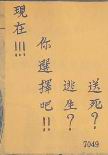 現在!!!
你選擇吧!!
逃生?
送死?
7049